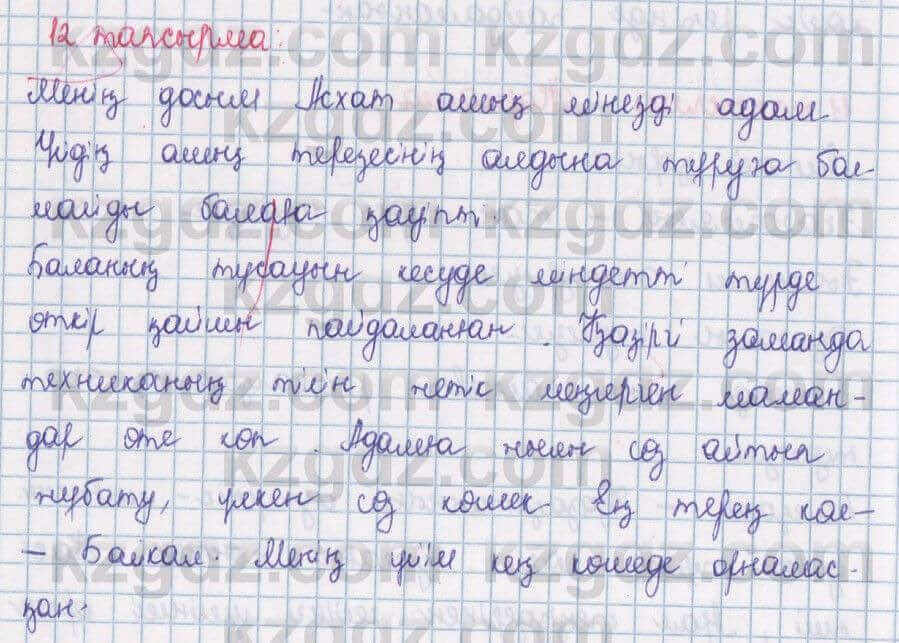 12 тапсырма:
Менің досым Асхат ашық мінезді адам
Үйдің ашық терезесінің алдына тұруға бол-
майды балаға қауіпті.
Баланың тұсауын кесуде міндетті түрде
өткір қайшы пайдаланған. Қазіргі заманда
техниканың тілін жетік меңгерген маман-
дар өте көп. Адамға жылы сөз айтып
жұбату, үлкен сөз көмек. Ең терең көл-
– Байкал. Менің үйім кең көшеде орналас-
қан.
kzgdz.com